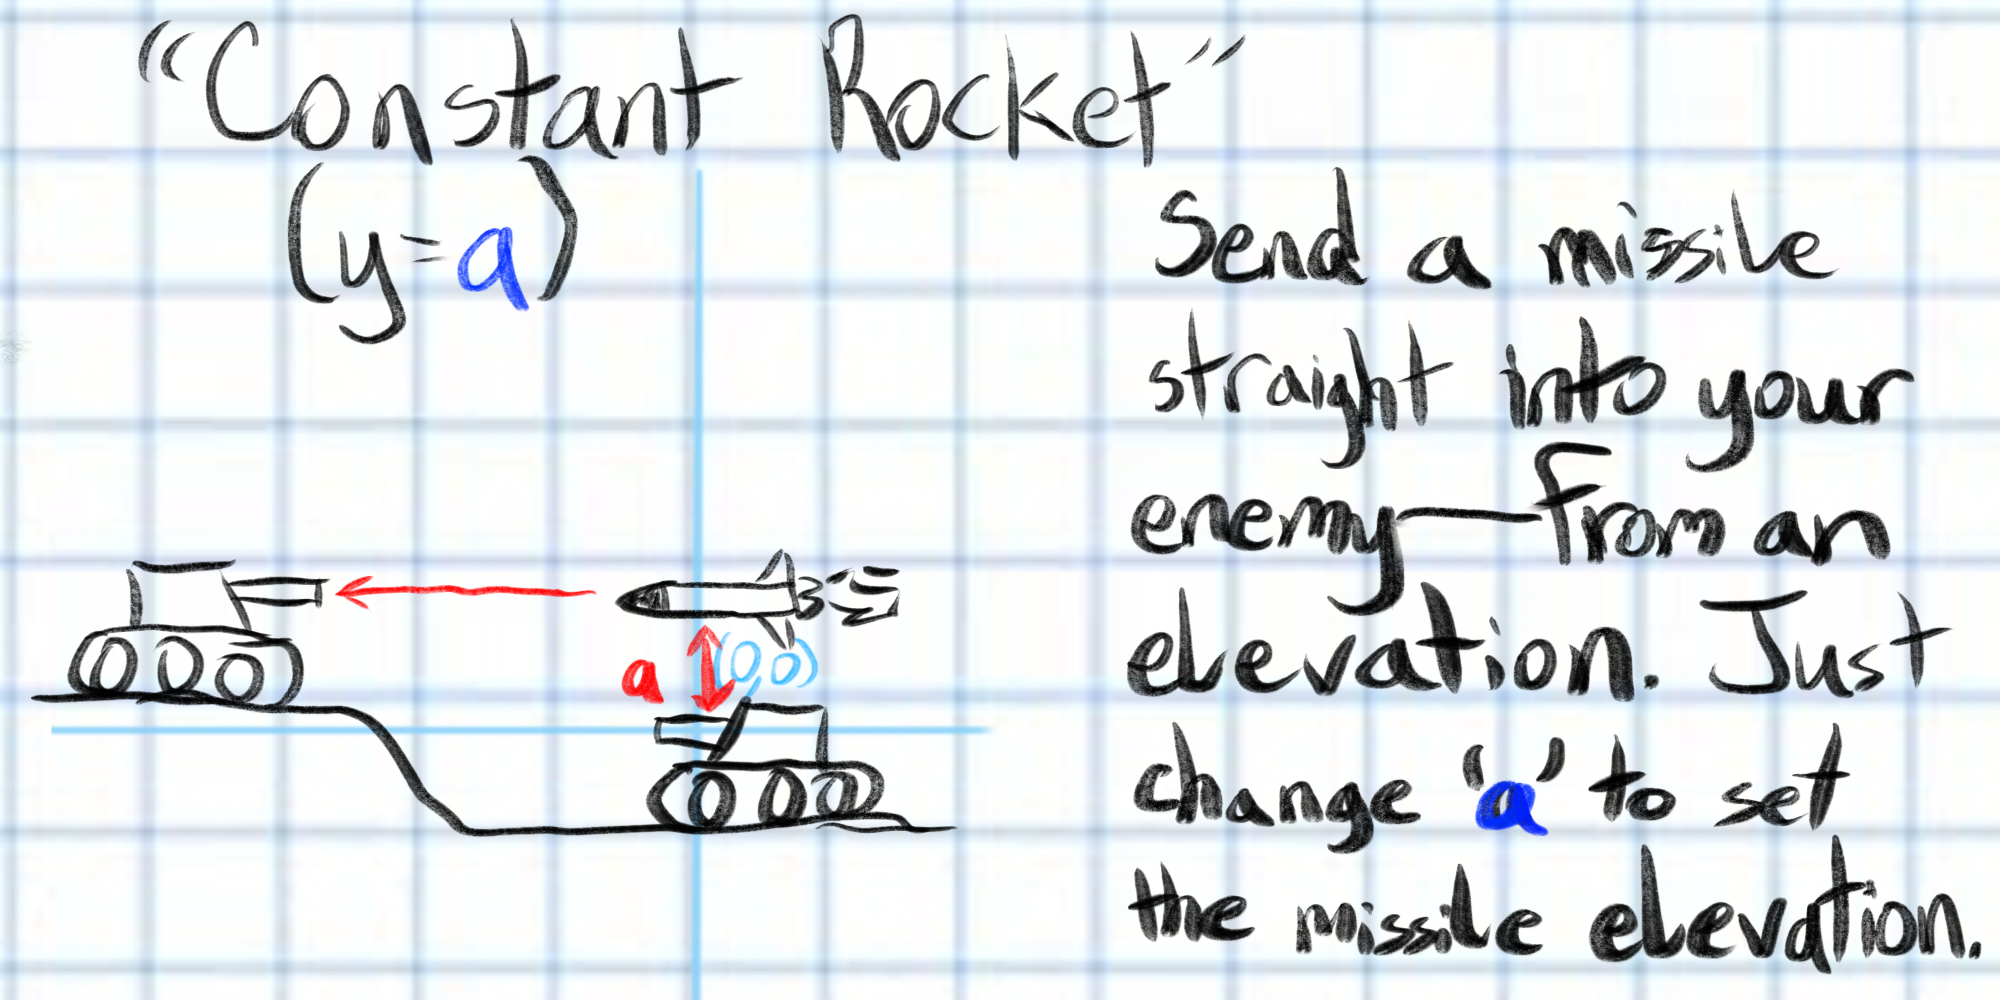 “Constant Rocket”
(y=a)
Send a missile
straight into your
enemy—from an
elevation. Just
change 'a' to set
the missile elevation.
a
(0,0)